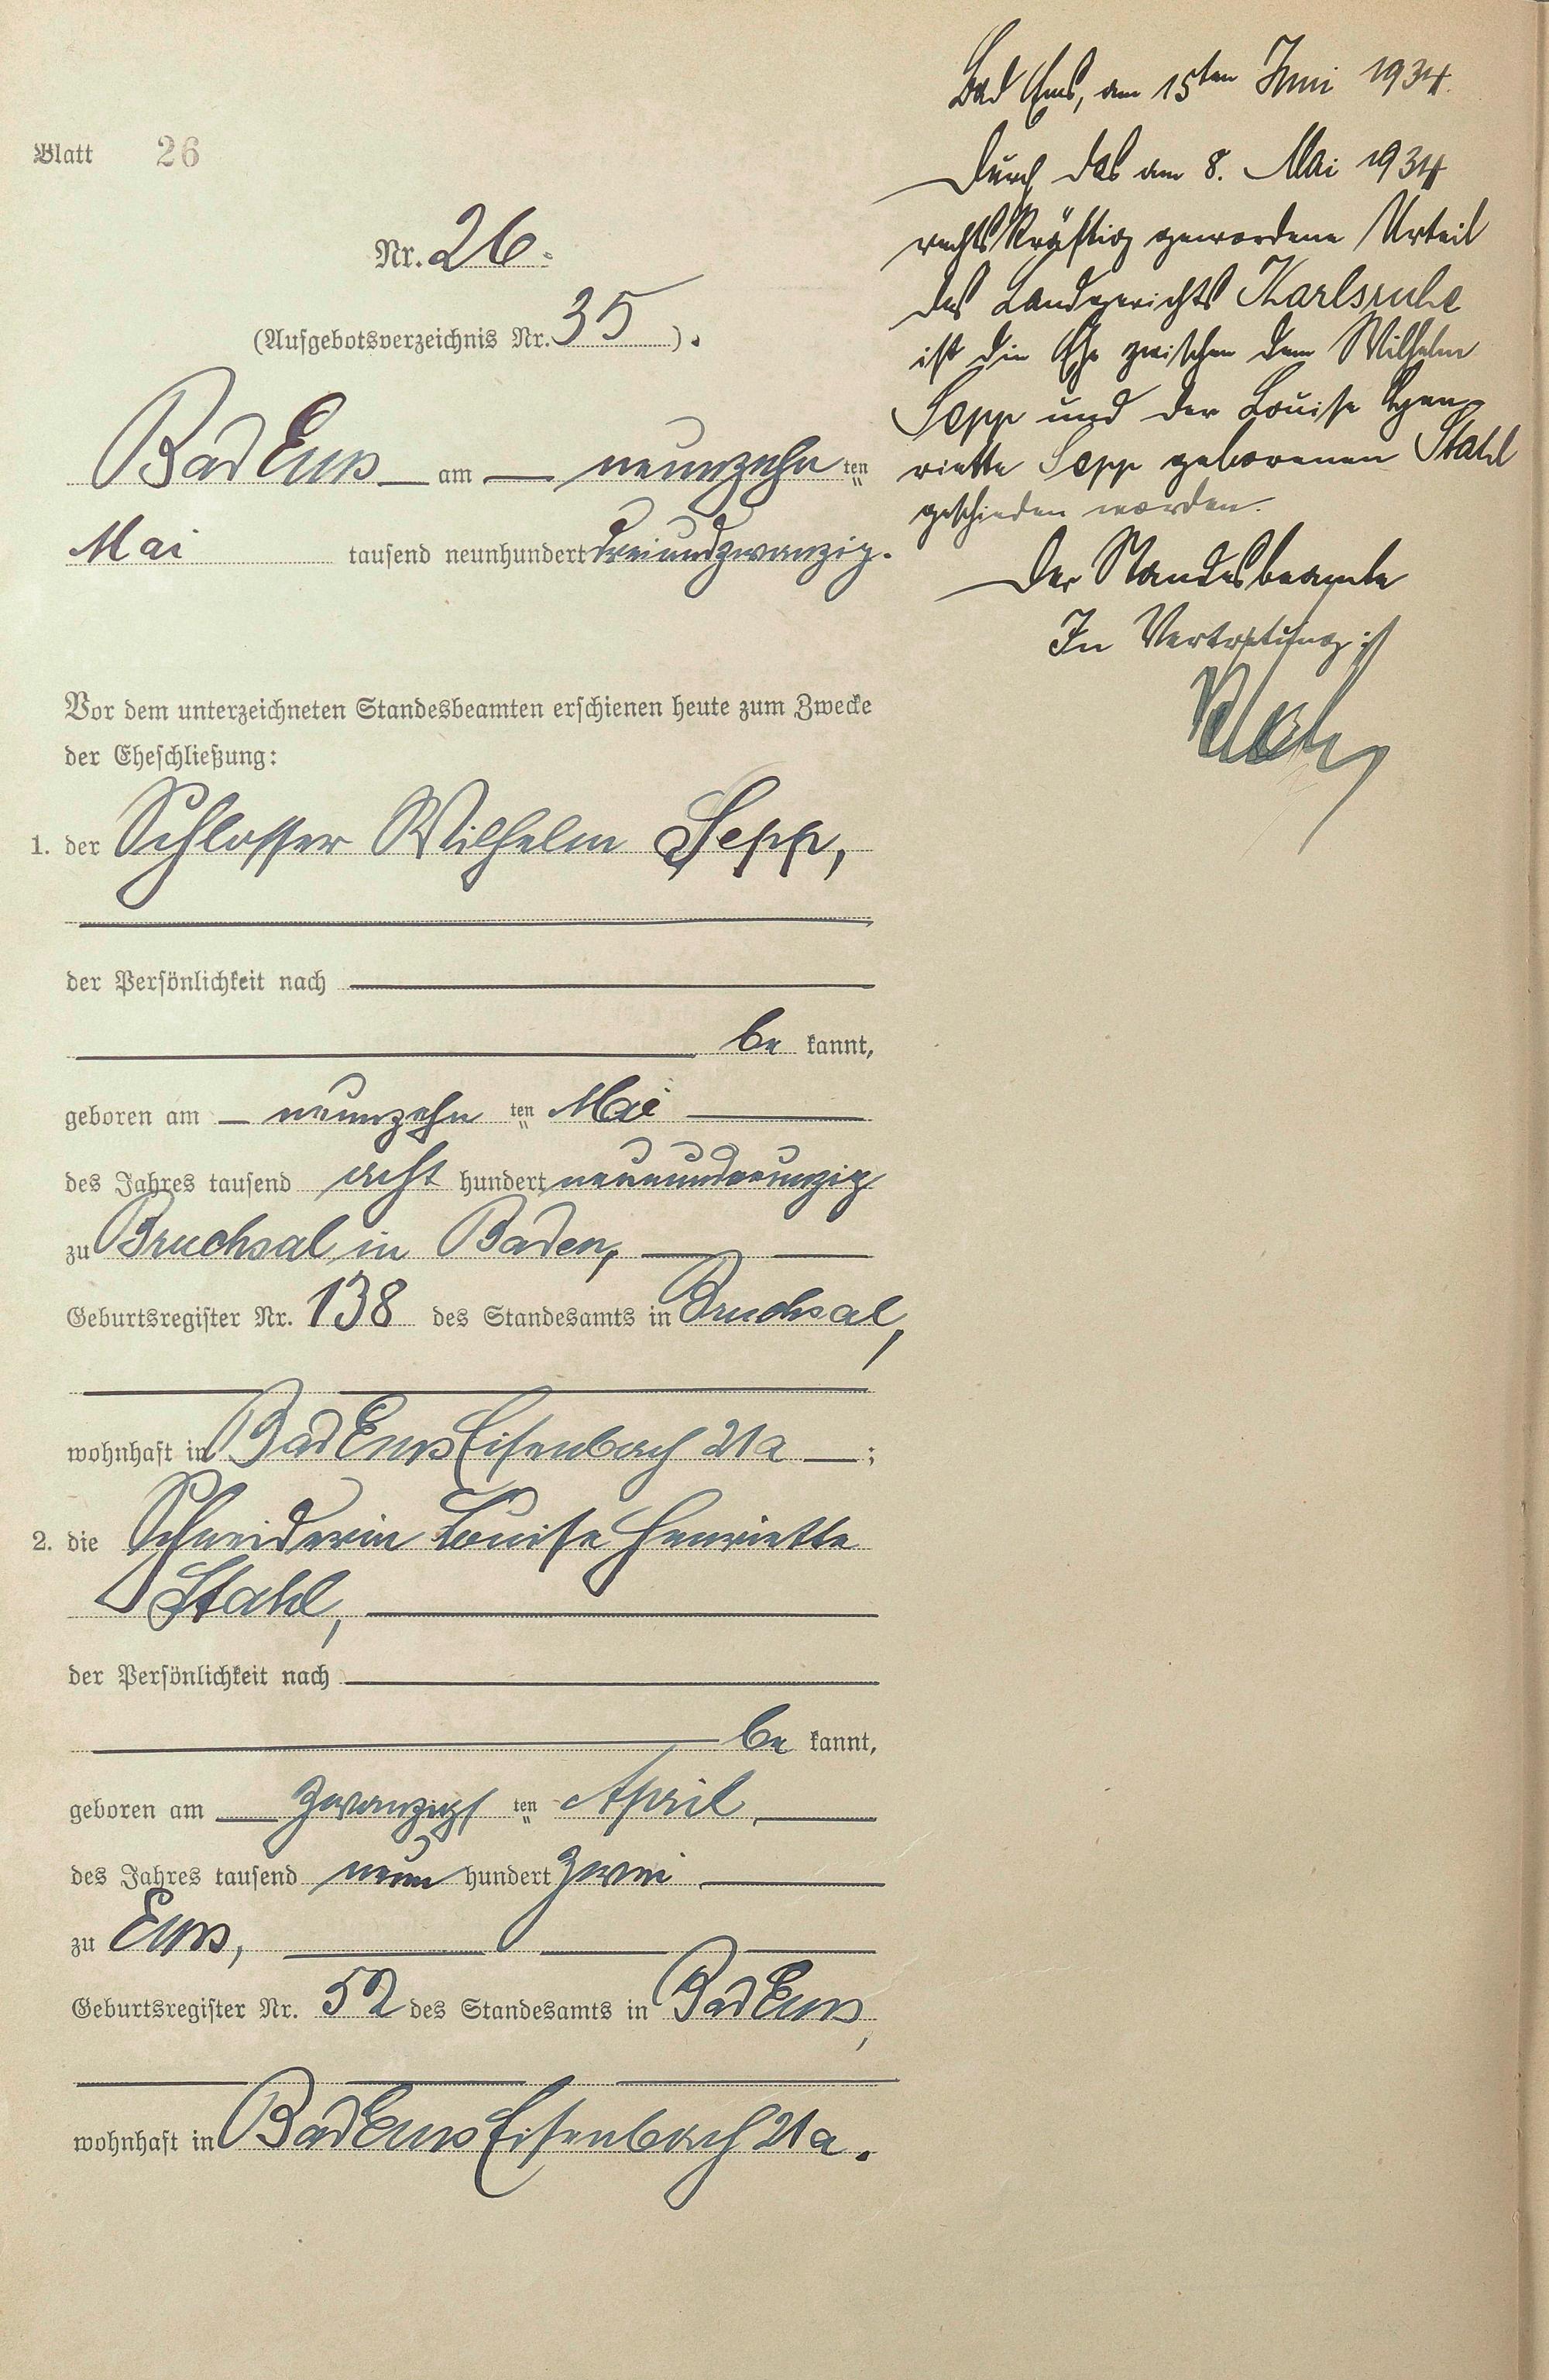 Blatt 26
Nr. 26.
(Aufgebotsverzeichnis Nr. 35).
Bad Ems am neunzehn ten
Mai tausend neunhundert dreiundzwanzig.
Vor dem unterzeichneten Standesbeamten erschienen heute zum Zwecke
der Eheschließung:
1. der Schlosser Wilhelm Sepp,
der Persönlichkeit nach
be kannt,
geboren am neunzehn ten Mai
des Jahres tausend acht hundert neunundneunzig
zu Bruchsal in Baden,
Geburtsregister Nr. 138 des Standesamts in Bruchsal,
wohnhaft in Bad Ems Eisenbach 21a;
2. die Schneiderin Louise Henriette
Stahl,
der Persönlichkeit nach
be kannt,
geboren am zwanzigs ten April
des Jahres tausend neun hundert zwei
zu Ems,
Geburtsregister Nr. 52 des Standesamts in Bad Ems,
wohnhaft in Bad Ems Eisenbach 21a.
Bad Ems, am 15ten Juni 1934.
Durch das am 8. Mai 1934
rechtskräftig gewordene Urteil
des Landgerichts Karlsruhe
ist die Ehe zwischen dem Wilhelm
Sepp und der Louise Hen-
riette Sepp geborenen Stahl
geschieden worden.
Der Standesbeamte
In Vertretung: